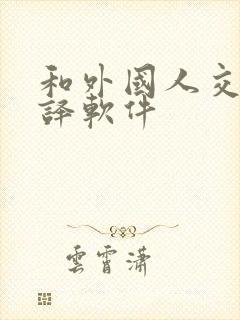 和外國人交
譯軟件
雲霄瀟